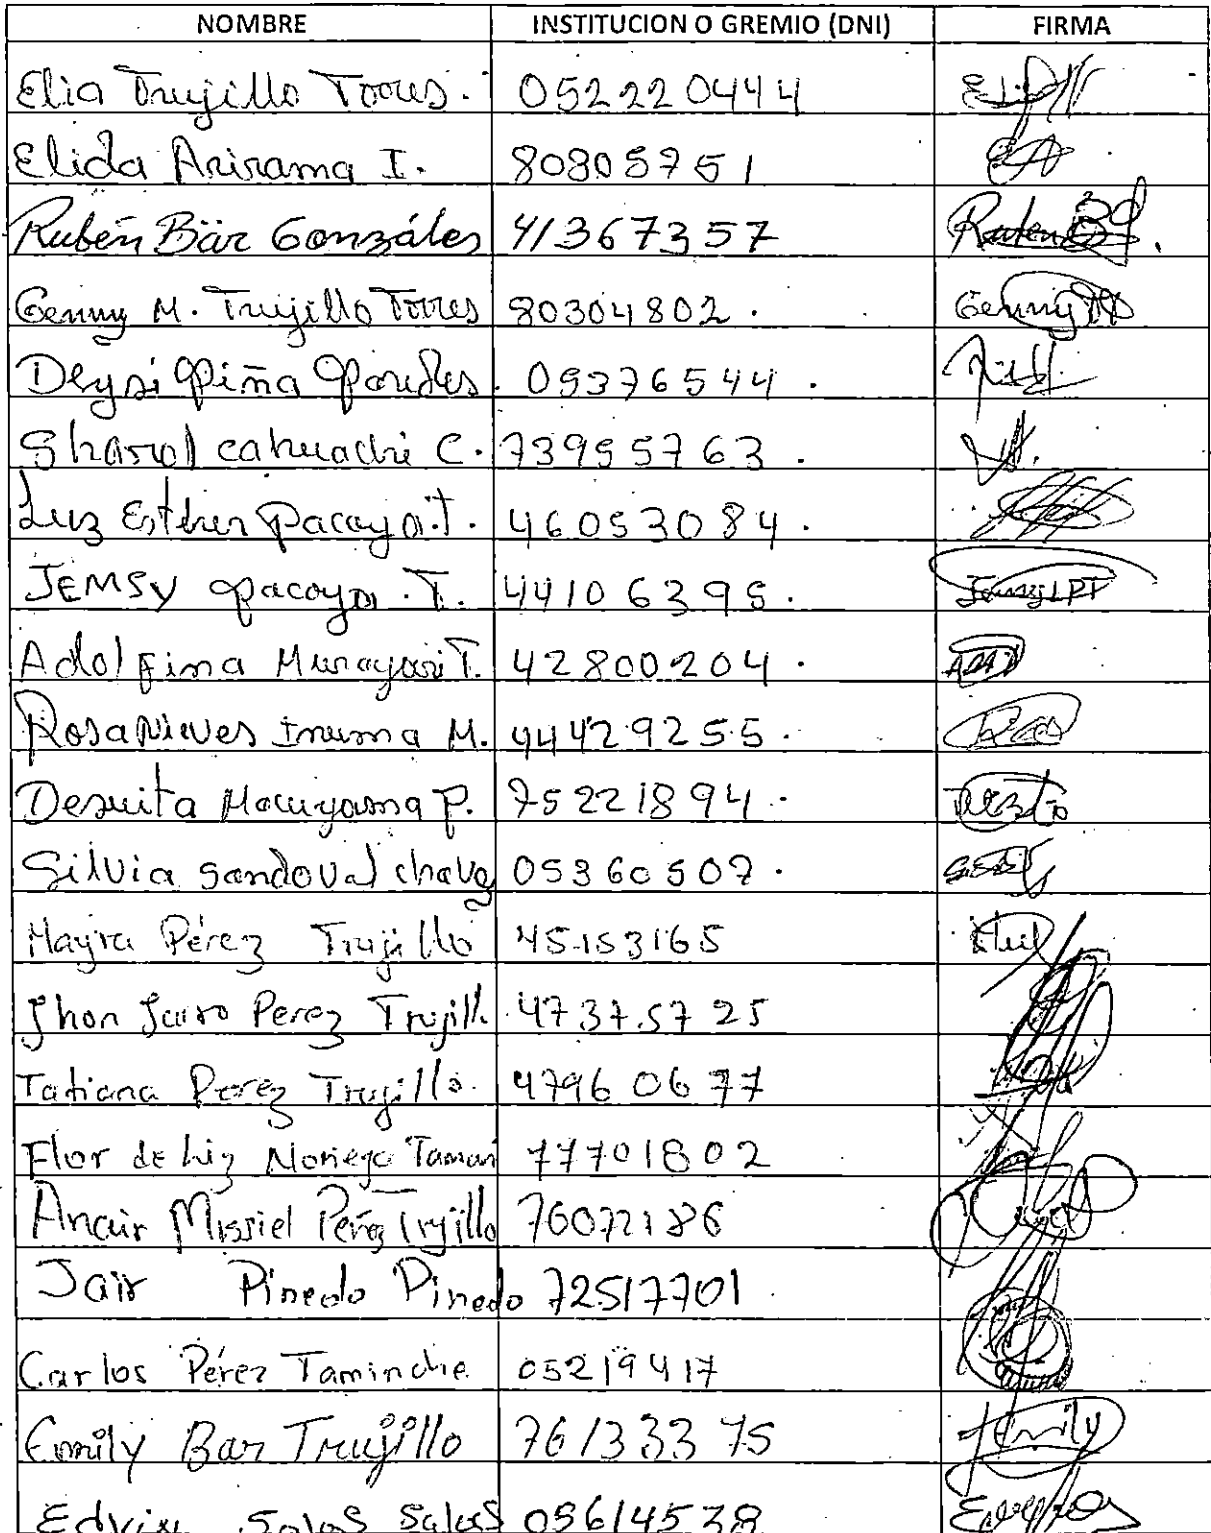 NOMBRE INSTITUCION O GREMIO (DNI) FIRMA
Elia Trujillo Torres. 052220444
Elida Arirama I. 80805751
Rubén Bär Gonzáles 41367357
Genny M. Trujillo Torres 80304802.
Deysi Piña Paredes. 05376544.
Sharol cahuachi C. 73955763.
Luz Esther Pacaya.T. 46053084.
JEMSY Pacaya.T. 44106395.
Adolfina Murayari T. 42800204.
Rosa Nieves Inuma M. 44429255.
Macuyama P. 75221894.
Silvia Sandoval chavez 05360507.
Mayra Pérez Trujillo 45153165
Jhon Jairo Perez Trujill. 47375725
Tatiana Perez Trujillo. 47960677
Flor de Liz Noriega Tamani 77701802
Anair Missiel Perez Trujillo 76072186
Jair Pinedo Pinedo 72517701
Carlos Pérez Taminche 05219417
Emily Bar Trujillo 76133375 Emily
Salas Salas 05614538